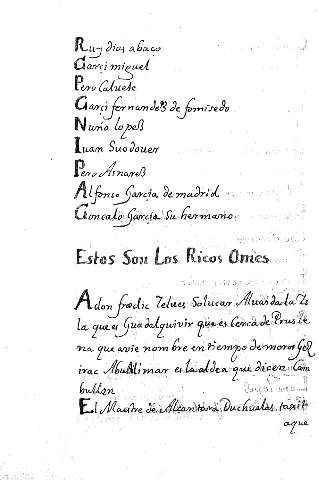 Ruy dias abaco
Garçi miguel
Pero Caluete
Garçi fernandeß de fomisedo
Nuño lopeß
Iuan Suodouer
Pero Arnareß
Alfonso Garçia de madrid
Goncalo Garçia Su hermano
Estos Son Los Ricos Omes
A don fradic Solucar la
la que es Guadalquivir que es Cerca de
na que avie nombre en tiempo de moros
es la aldea que dicen Cam
bullon
El Maestre de Alcantara
aque